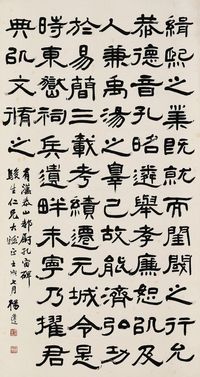 緝熙之業既就而閨閾之行允
恭德音孔昭遂舉孝廉恕㠯及
人兼禹湯之辠己故能濟弘功
於易簡三載考績遷元城令是
時東嶽祠兵遺畔未寧乃擢君
典戎㠯文脩之
有漢泰山都尉孔宙碑
駿生仁兄大雅正 壬戌七月 楊逸